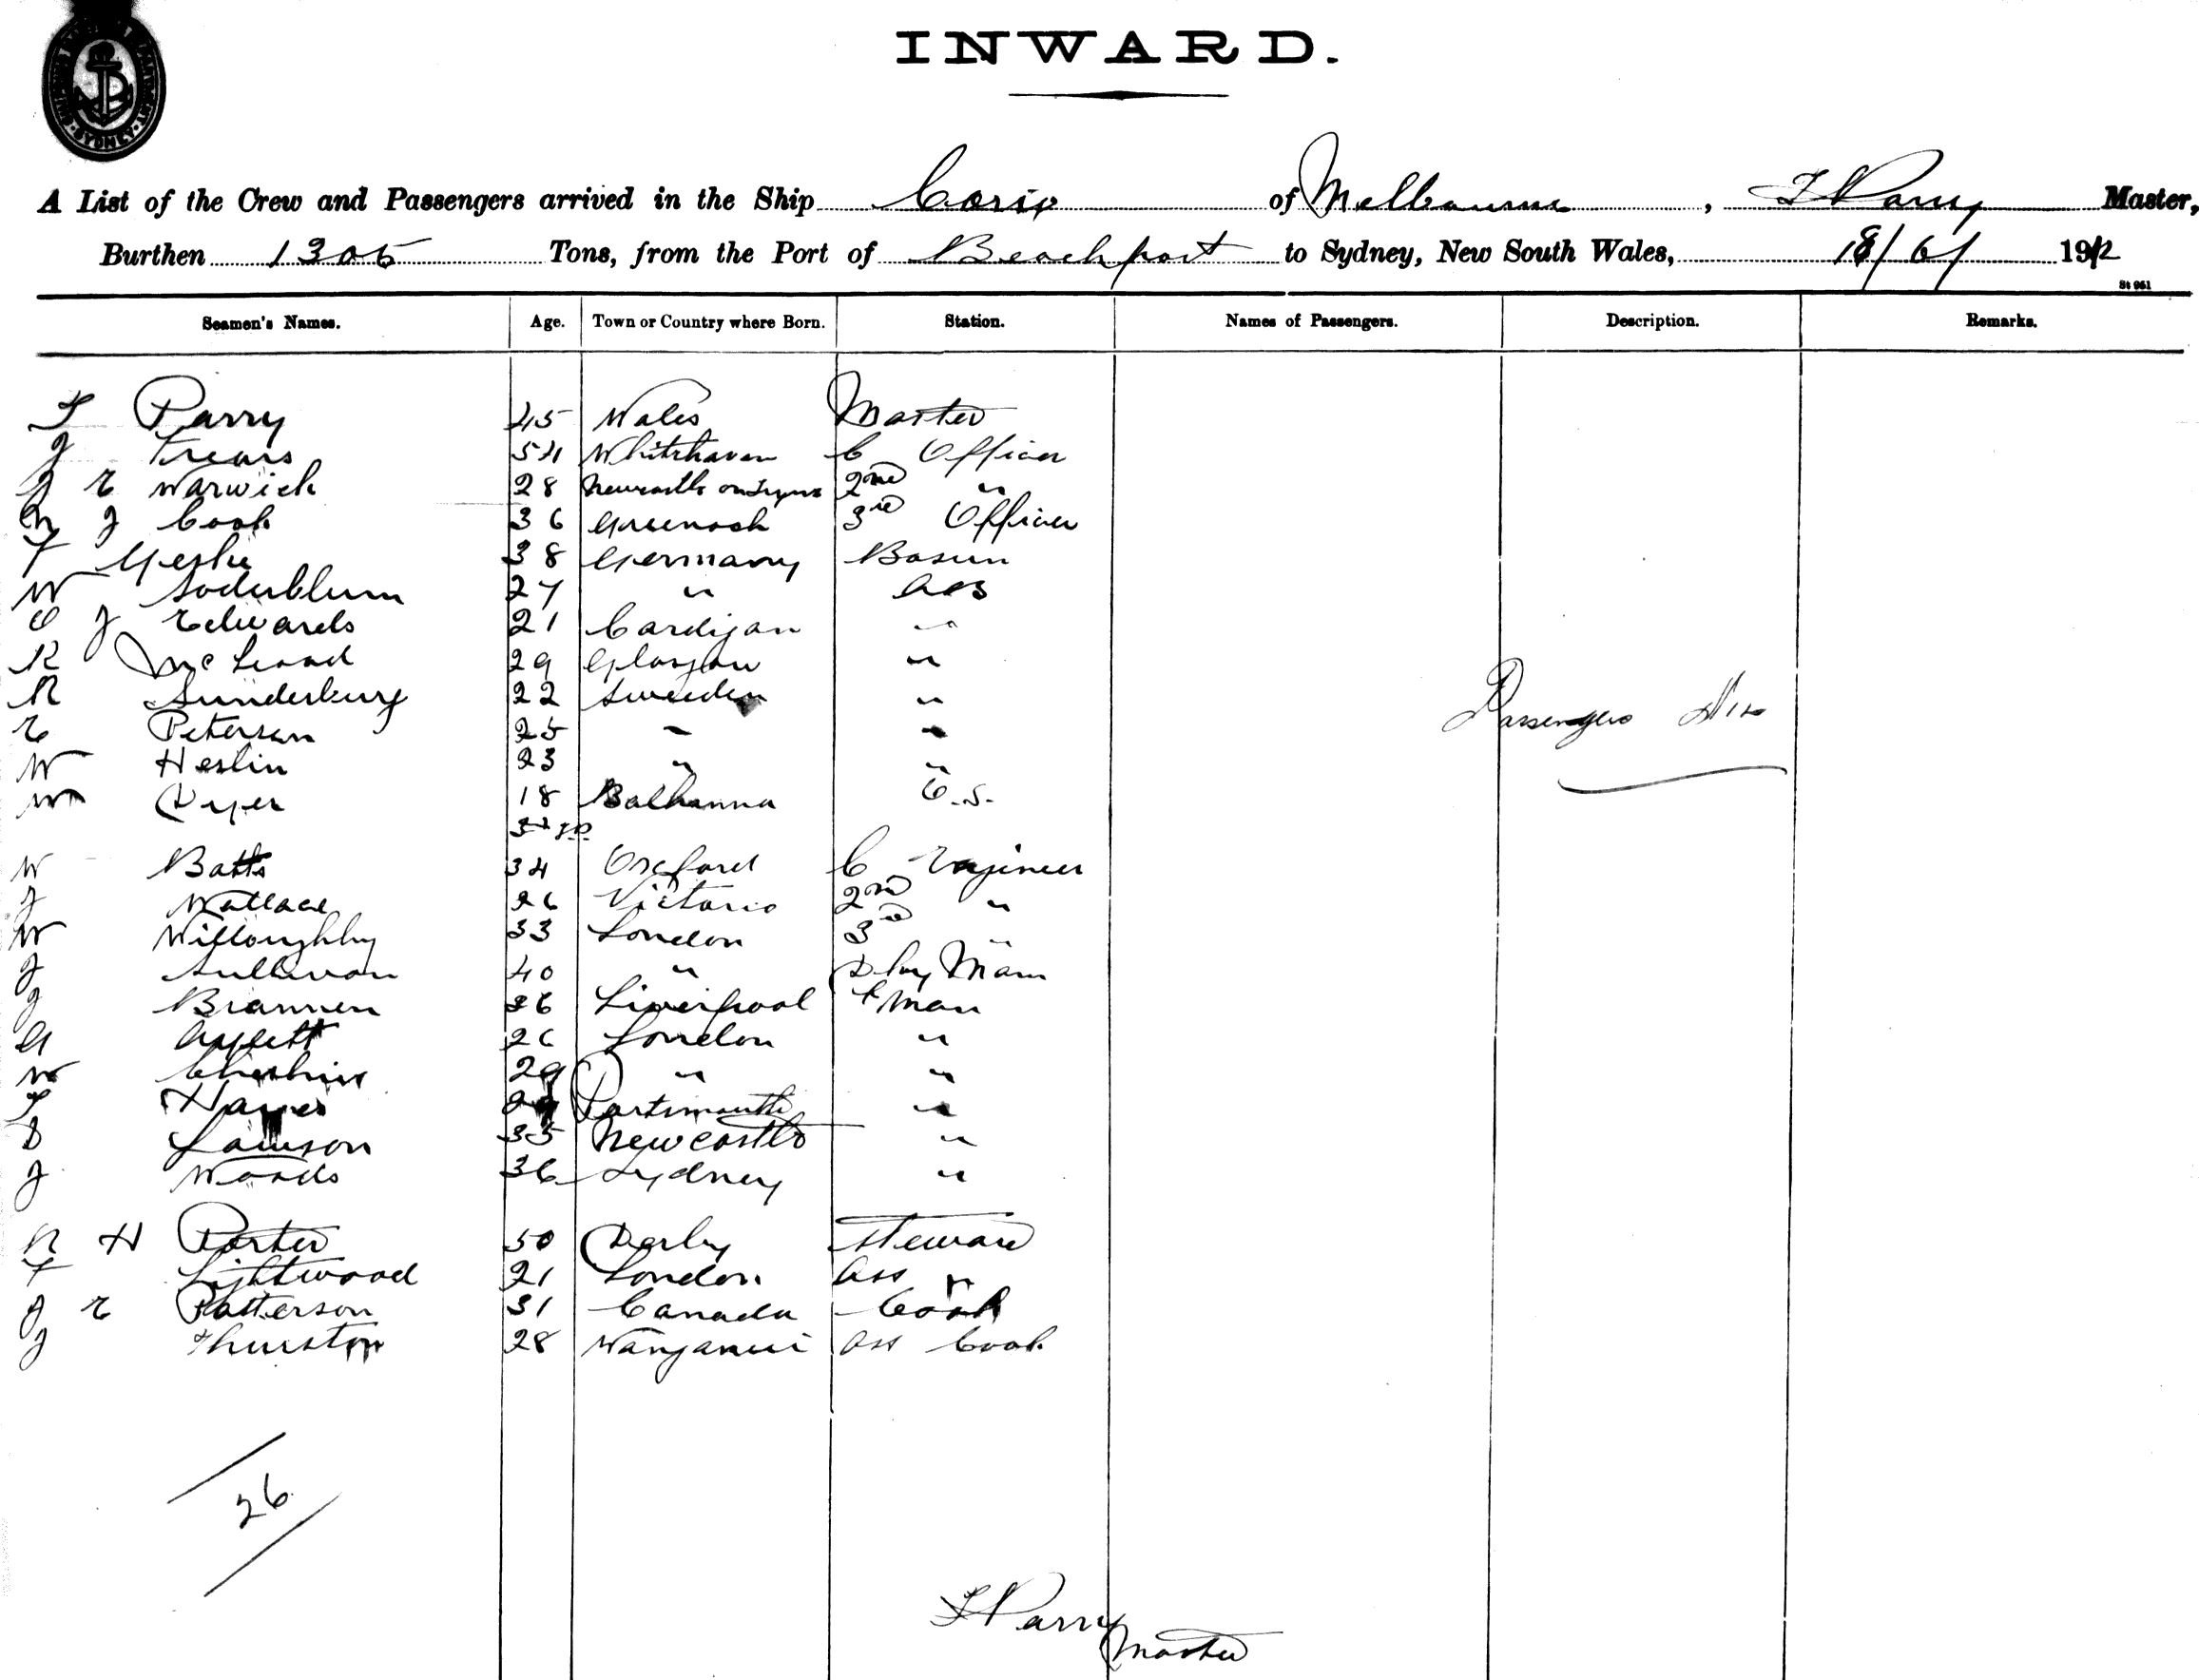 INWARD.
SYDNEY
A List of the Crew and Passengers arrived in the Ship Corio of Melbourne, T Parry Master,
Burthen 1305 Tons, from the Port of Beachport to Sydney, New South Wales, 18/6/ 1912
St 961
Seamen's Names. Age. Town or Country where Born. Station. Names of Passengers. Description. Remarks.
T Parry 45 Wales Master
J Frears 54 Whitehaven C Officer
J E Warwick 28 Newcastle on Tyne 2nd "
J Cook 36 Greenock 3rd Officer
F Geske 38 Germany Bosun
W Soderblum 27 " ABS
O J Edwards 21 Cardigan "
R McLeod 29 Glasgow "
R Sunderburg 22 Sweeden "
E Peterson 25 " "
W Heslin 23 " "
Wm Dyer 18 Balhanna O.S.
Passengers Nil
W Batts 34 Oxford C Engineer
J Wallace 26 Victoria 2nd "
W Willoughby 33 London 3rd "
J Sullivan 40 " Dky Man
J Brannen 36 Liverpool F Man
A 26 London "
W Cheshire 29 " "
T Hayes Portsmouth "
D Lawson 35 Newcastle "
J Woods 36 Sydney "
R H Porter 50 Derby Steward
F Lightwood 21 London Ass "
J E Patterson 31 Canada Cook
J Thurston 28 Wanganui Ass Cook
26
T Parry
Master